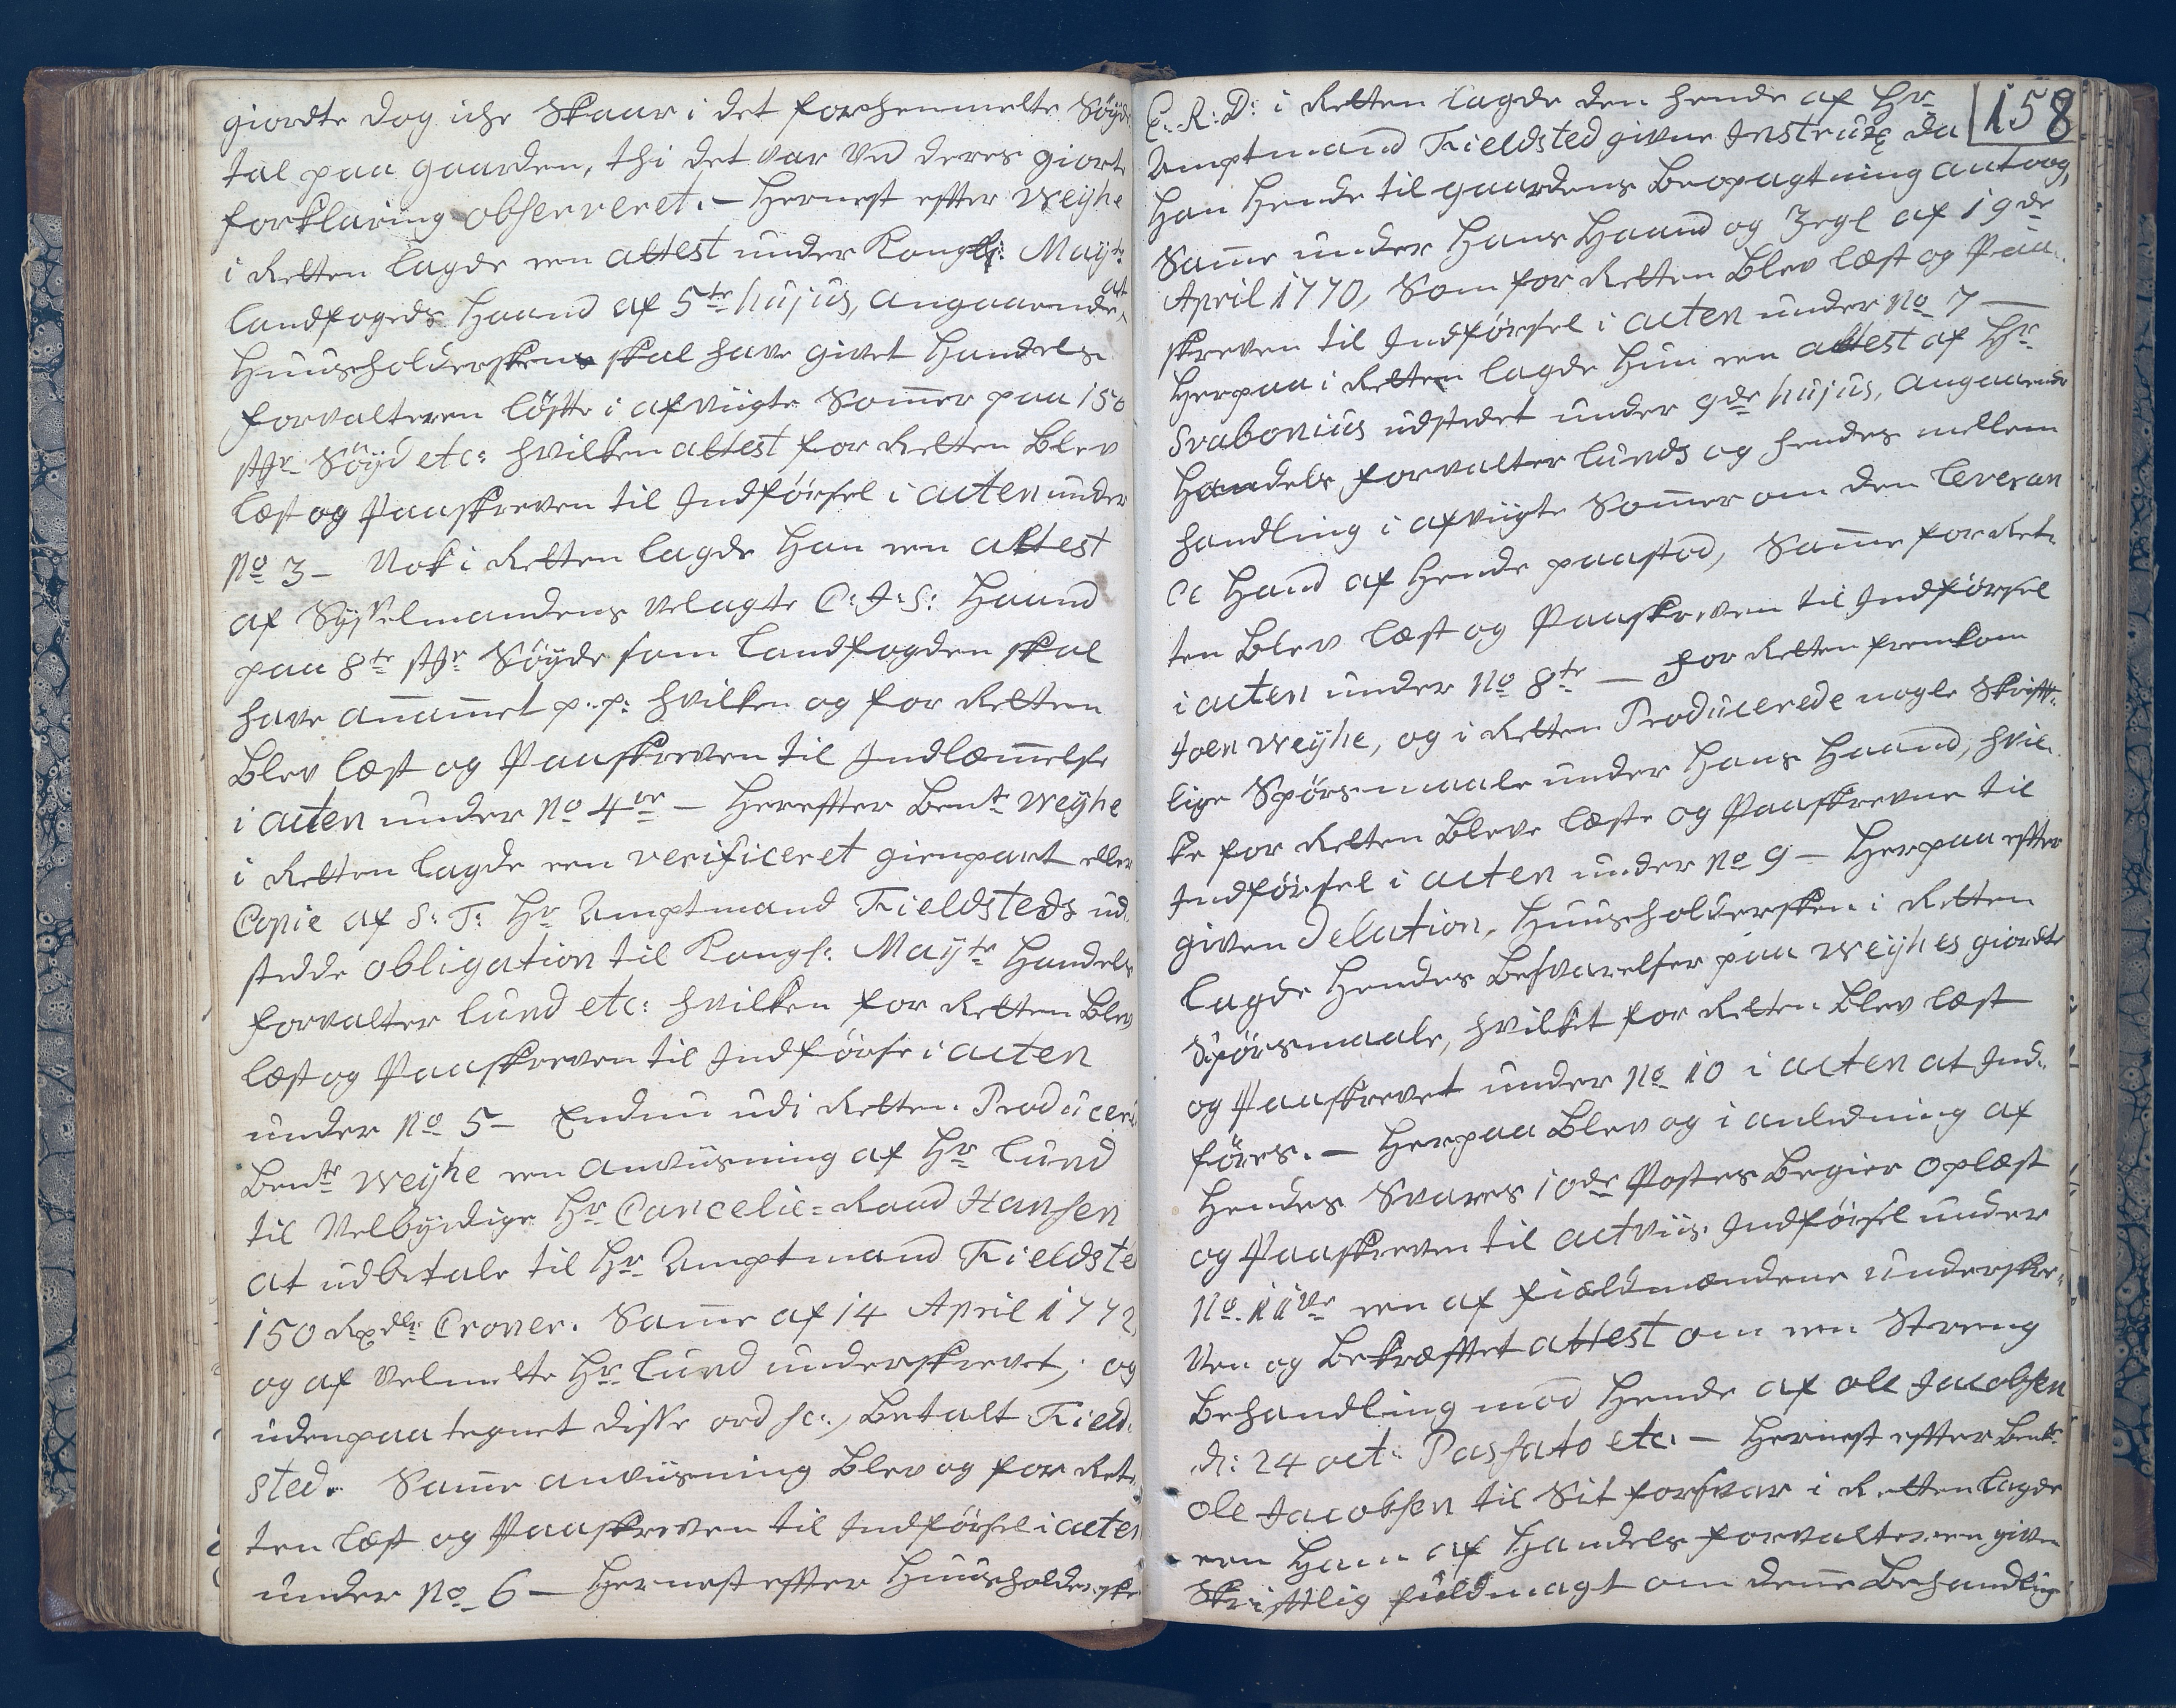 giordte dog iche Skaar i det forhenmelte Söyde
tal paa gaarden, thi det var Ved deres giorte
forklaring observeret. — Hernest effter Weyhe
i Retten lagde een attest under Kongel: Mayts
at
landfogeds Haand af 5te hujus, angaaende,
Huusholdersken skal have givet Handels
forvalteren löffte i afviigte Som̅er paa 150
stkr Söyd etc: hvilken attest for Retten Blev
læst og Paaskreven til Indförsel i acten under
No 3 — Nok i Retten lagde Han een attest
af Sysselmandens velagte C: J: S: Haand
paa 8te stkr Söyde som landfogden skal
have an̅am̅et p. p: hvilken og for Retten
Blev læst og Paaskreven til Indlæm̅else
i acten under No 4de — Hereffter Bente Weyhe
i Retten lagde een verificeret gienpart eller
Copie af S: T: Hr Amptmand Fieldsteds ud-
stedde obligation til Kongl: Mayts Handels
forvalter Lund etc: hvilken for Retten Blev
læst og Paaskreven til Indförse i acten
under No 5 — Endnu udi Retten Producere
Bente Weyhe een anviisning af Hr Lund
til Velbyrdige Hr Cancelie-Raad Hansen
at udbetale til Hr Amptmand Fieldste
150 Rxdlr Croner. Sam̅e af 14 April 1772,
og af Velmelte Hr Lund underskrevet, og
udenpaa tegnet disse ord sc:, Betalt Field-
sted. Sam̅e anviisning Blev og for Ret-
ten læst og Paaskreven til Indförsel i acten
under No 6 — Hernest effter Huusholderske
158
E: R: D: i Retten lagde den hende af Hr
Amptmand Fieldsted givne Instrux da
Han Hende til gaardens Beopagtning antoog,
Sam̅e under Hans Haand og Zegl af 19de
April 1770, Som for Retten Blev læst og Paa-
skreven til Indförsel i acten under No 7 —
Herpaa i Retten lagde Hun een attest af Hr
Svabonius udstedet under 9de hujus, angaaende
Handels forvalter Lunds og hendes mellem
handling i afviigte Som̅er om den leveran
ce Hand af Hende paastod, Sam̅e for Ret-
ten Blev læst og Paaskreven til Indförsel
i acten under No 8te — for Retten fremkom
Joen Weyhe, og i Retten Producerede nogle Skrifft-
lige Spörsmaale under Hans Haand, hvil-
ke for Retten Bleve læste og Paaskrevne til
Indförsel i acten under No 9 — Herpaa effter
given Delation, Huusholdersken i Retten
lagde Hendes Besvarelser paa Weyhes giordte
Spörsmaale, hvilket for Retten Blev læst
og Paaskrevet under No 10 i acten at Ind-
föres. — Herpaa Blev og i anledning af
Hendes Svares 10de Postes Begier oplæst
og Paaskreven til actviis Indförsel under
No. 11te een af fieldmændene underskre-
ven og Bekræfftet attest om een Streng
Behandling mod Hende af ole Jacobsen
d: 24 oct: Passato etc: — Hernest effter Bente
Ole Jacobsen til Sit forsvar i Retten lagde
een Ham af Handels forvalteren given
Skrifftlig fuldmagt om den̅e Behandling